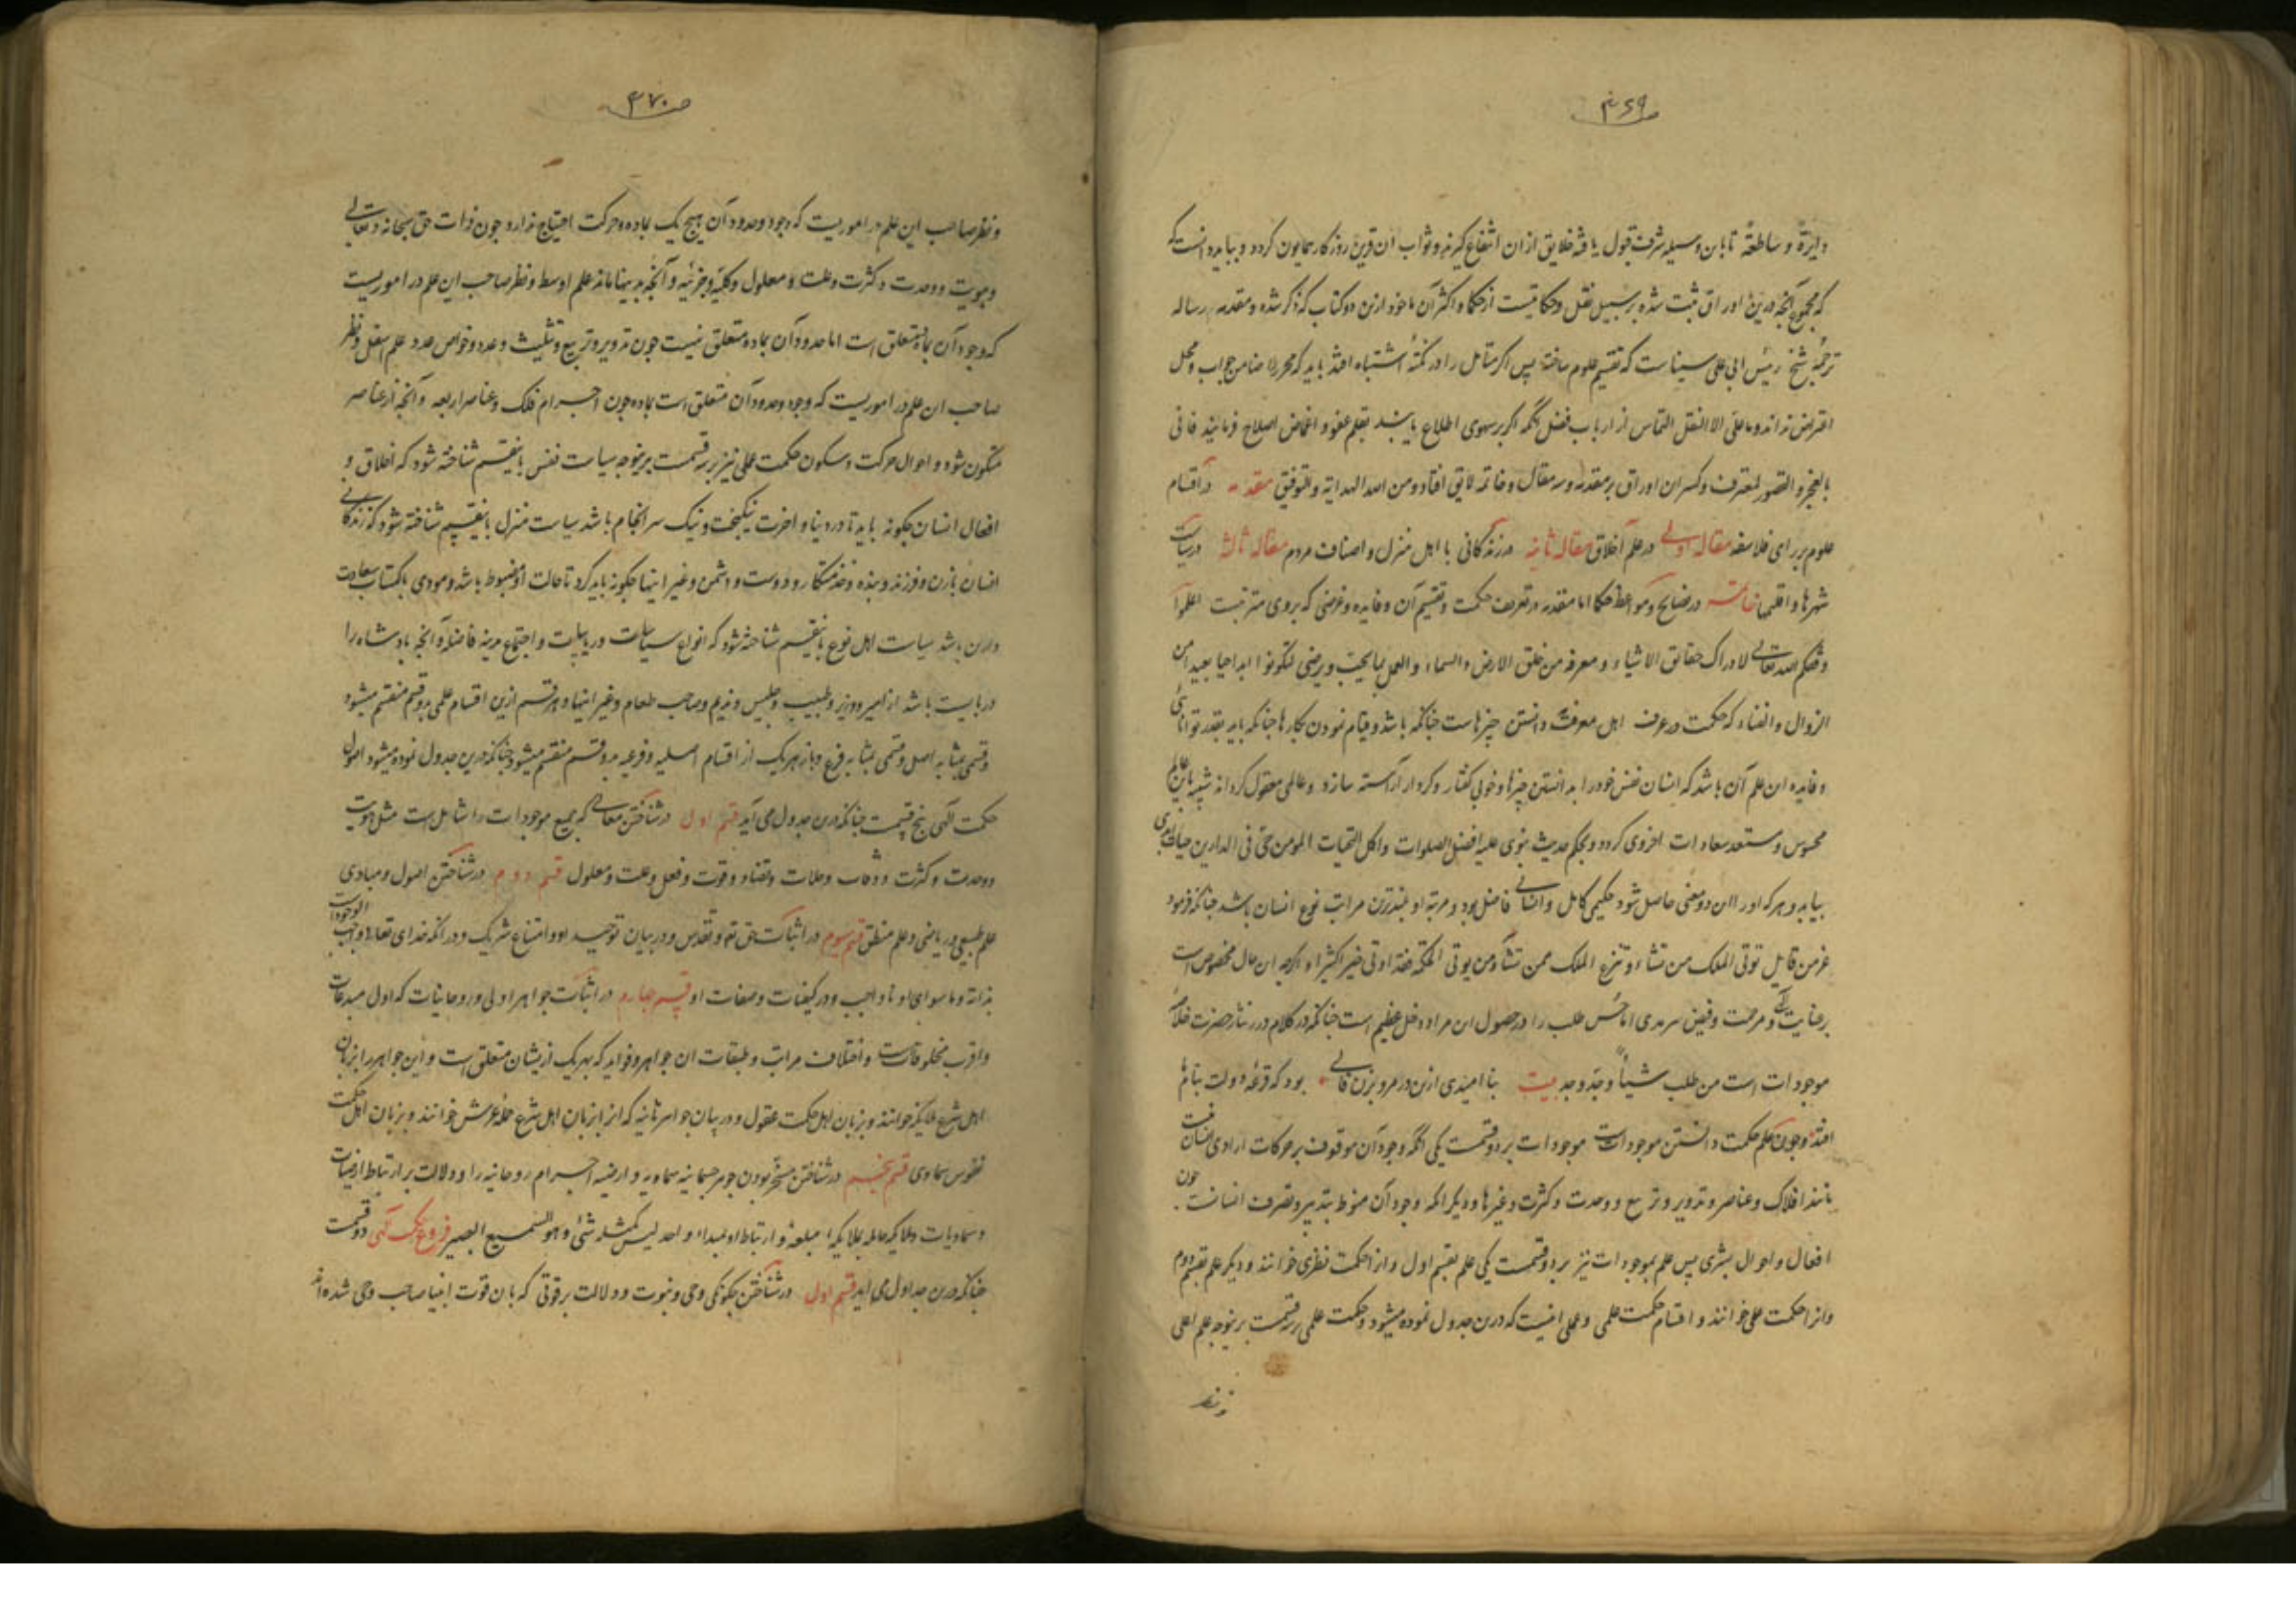 ص۴۶۹
دایرة و ساطعة تا باین وسیله شرف قبول یافته خلایق ازان انتفاع گیرند و ثواب ان قرین روزکار همایون کردد و بباید دانست که
که مجموع آنچه درین اوراق ثبت شده بر سبیل نقل و حکایتست از حکما و اکثر آن ماخوذ ازین دو کتاب که ذکر شده و مقدمه رساله
ترجمه شیخ رئیس ابی علی سیناست که تقسیم علوم ساخته پس اکر متامل را در نکته اشتباه افتد باید که محرر را ضامن جواب و محل
اعتراض نداند و ما علی الا النقل التماس از ارباب فضل انکه اکر بر سهوی اطلاع یابند بقلم عفو و اغماض اصلاح فرمایند فانی
بالعجز و القصور لمعترف و کسر ان اوراق بر مقدمه و سه مقاله و خاتمه لایق افتاد و من الله الهدایة و التوفیق مقدمه در اقسام
علوم بر رای فلاسفه مقاله اولی در علم اخلاق مقاله ثانیه در زندکانی با اهل منزل و اصناف مردم مقاله ثالثه در سیاست
شهرها و اقلیمها خاتمه در نصایح و مواعظ حکما اما مقدمه در تعریف حکمت و تقسیم آن و فایده و غرضی که بروی مترتبست اعلموا
وفقکم الله تعالی لادراک حقایق الاشیاء و معرفة من خلق الارض و السماء و العمل بما یحب و یرضی لتکونوا ابدا احیا بعیدا من
الزوال و الفناء که حکمت در عرف اهل معرفت دانستن چیزهاست چنانکه باشد و قیام نمودن بکارها چنانکه باید بقدر توانائی
و فایده این علم آن باشد که انسان نفس خود را بدانستن چیزها و خوبی کفتار و کردار آراسته سازد و عالمی معقول کرداند شبیه باین عالم
محسوس و مستعد سعادات اخروی کردد و بحکم حدیث نبوی علیه افضل الصلوات و اکمل التحیات المومن حی فی الدارین حیات ابدی
بیابد و هر که اورا این دو معنی حاصل شود حکیمی کامل و انسانی فاضل بود و مرتبه او بلندترین مراتب نوع انسان باشد چنانکه فرمود
عز من قایل توتی الملک من تشاء و تنزع الملک ممن تشاء و من یوتی الحکمة فقد اوتی خیرا کثیرا و اکرچه این حال مخصوص است
بعنایت الهی و مرحمت و فیض سرمدی اما حسن طلب را در حصول ان مراد دخل عظیم است چنانکه در کلام درر نثار حضرت خلاصه
موجودات است من طلب شیئاً وجد وجد بیت بنا امیدی ازین در مرو بزن فالی بود که قرعه دولت بنام ما
افتد و چون علم حکمت دانستن موجوداتست موجودات بر دو قسمت یکی انکه وجود آن موقوف بر حرکات ارادی انسان نیست
مانند افلاک و عناصر و تدویر و تربیع و وحدت و کثرت و غیرها و دیکر انکه وجود آن منوط بتدبیر و تصرف انسانست چون
افعال و احوال بشری پس علم بموجودات نیز بر دو قسمت یکی علم بقسم اول و انرا حکمت نظری خوانند و دیکر علم بقسم دوم
و انرا حکمت عملی خوانند و اقسام حکمت علمی و عملی اینست که درین جدول نموده میشود و حکمت علمی بر سه قسمت برینوجه علم اعلی
و نظر
ص۴۷۰
و نظر صاحب این علم در اموریست که وجود و حدود آن هیچ یک بماده و حرکت احتیاج ندارد چون ذات حق سبحانه و تعالی
و هویت و وحدت و کثرت و علت و معلول و کلیه و جزئیه و آنچه بدینها ماند علم اوسط و نظر صاحب این علم در اموریست
که وجود آن بماده متعلق است اما حدود آن بماده متعلق نیست چون تدویر و تربیع و تثلیث و عدد و خواص عدد علم اسفل و نظر
صاحب ان علم در اموریست که وجود و حدود آن متعلق است بماده چون اجرام فلک و عناصر اربعه و آنچه از عناصر
متکون شود و احوال حرکت و سکون حکمت عملی نیز بر سه قسمت برینوجه سیاست نفس باین قسم شناخته شود که اخلاق و
افعال انسان چکونه باید تا در دنیا و اخرت نیکبخت و نیک سرانجام باشد سیاست منزل باین قسم شناخته شود که زندکانی
انسان با زن و فرزند و بنده و خدمتکار و دوست و دشمن و غیر اینها چکونه باید کرد تا حالت او مضبوط باشد و مودی باکتساب سعادت
دارین باشد سیاست اهل نوع باین قسم شناخته شود که انواع سیاسات و ریاسات و اجتماع مدینه فاضله و آنچه بادشاه را
دربایست باشد از امیر و وزیر و طبیب و جلیس و ندیم و صاحب طعام و غیر اینها و هر قسم ازین اقسام علمی بدو قسم منقسم میشود
و قسمی بمثابه اصل و قسمی بمثابه فرع و باز هر یک از اقسام اصلیه و فرعیه بدو قسم منقسم میشود چنانکه درین جدول نموده میشود اصول
حکمت الهی پنج قسمست چنانکه درین جدول می آید قسم اول در شناختن معانی که جمیع موجودات را شاملست مثل هویت
و وحدت و کثرت و وفاق و خلاف و تضاد و قوت و فعل و علت و معلول قسم دوم در شناختن اصول و مبادی
علم طبیعی و ریاضی و علم منطق قسم سوم در اثبات حق تع و تقدس و در بیان توحید او و امتناع شریک و در انکه خدای تعالی واجب الوجودست
بذاته و ما سوای او نا واجب و در کیفیات و صفات او قسم چهارم در اثبات جواهر اولی و روحانیات که اول مبدعات
و اقرب مخلوقاتست و اختلاف مراتب و طبقات ان جواهر و فواید که بهر یک ازیشان متعلق است و این جواهر را بزبان
اهل شرع ملایکه خوانند و بزبان اهل حکمت عقول و در بیان جواهر ثانیه که انرا بزبان اهل شرع حمله عرش خوانند و بزبان اهل حکمت
نفوس سماوی قسم پنجم در شناختن مسخر بودن جواهر جسمانیه سماویه و ارضیه اجرام روحانیه را و دلالت بر ارتباط ارضیات
و سماویات و ملایکه عامله بملایکه مبلغه و ارتباط او بمبداء واحد لیس کمثله شئ و هو السمیع البصیر فروع حکمت الهی دو قسمت
چنانکه درین جداول می آید قسم اول در شناختن چکونکی وحی و نبوت و دلالت بر قوتی که بان قوت انبیا صاحب وحی شده اند